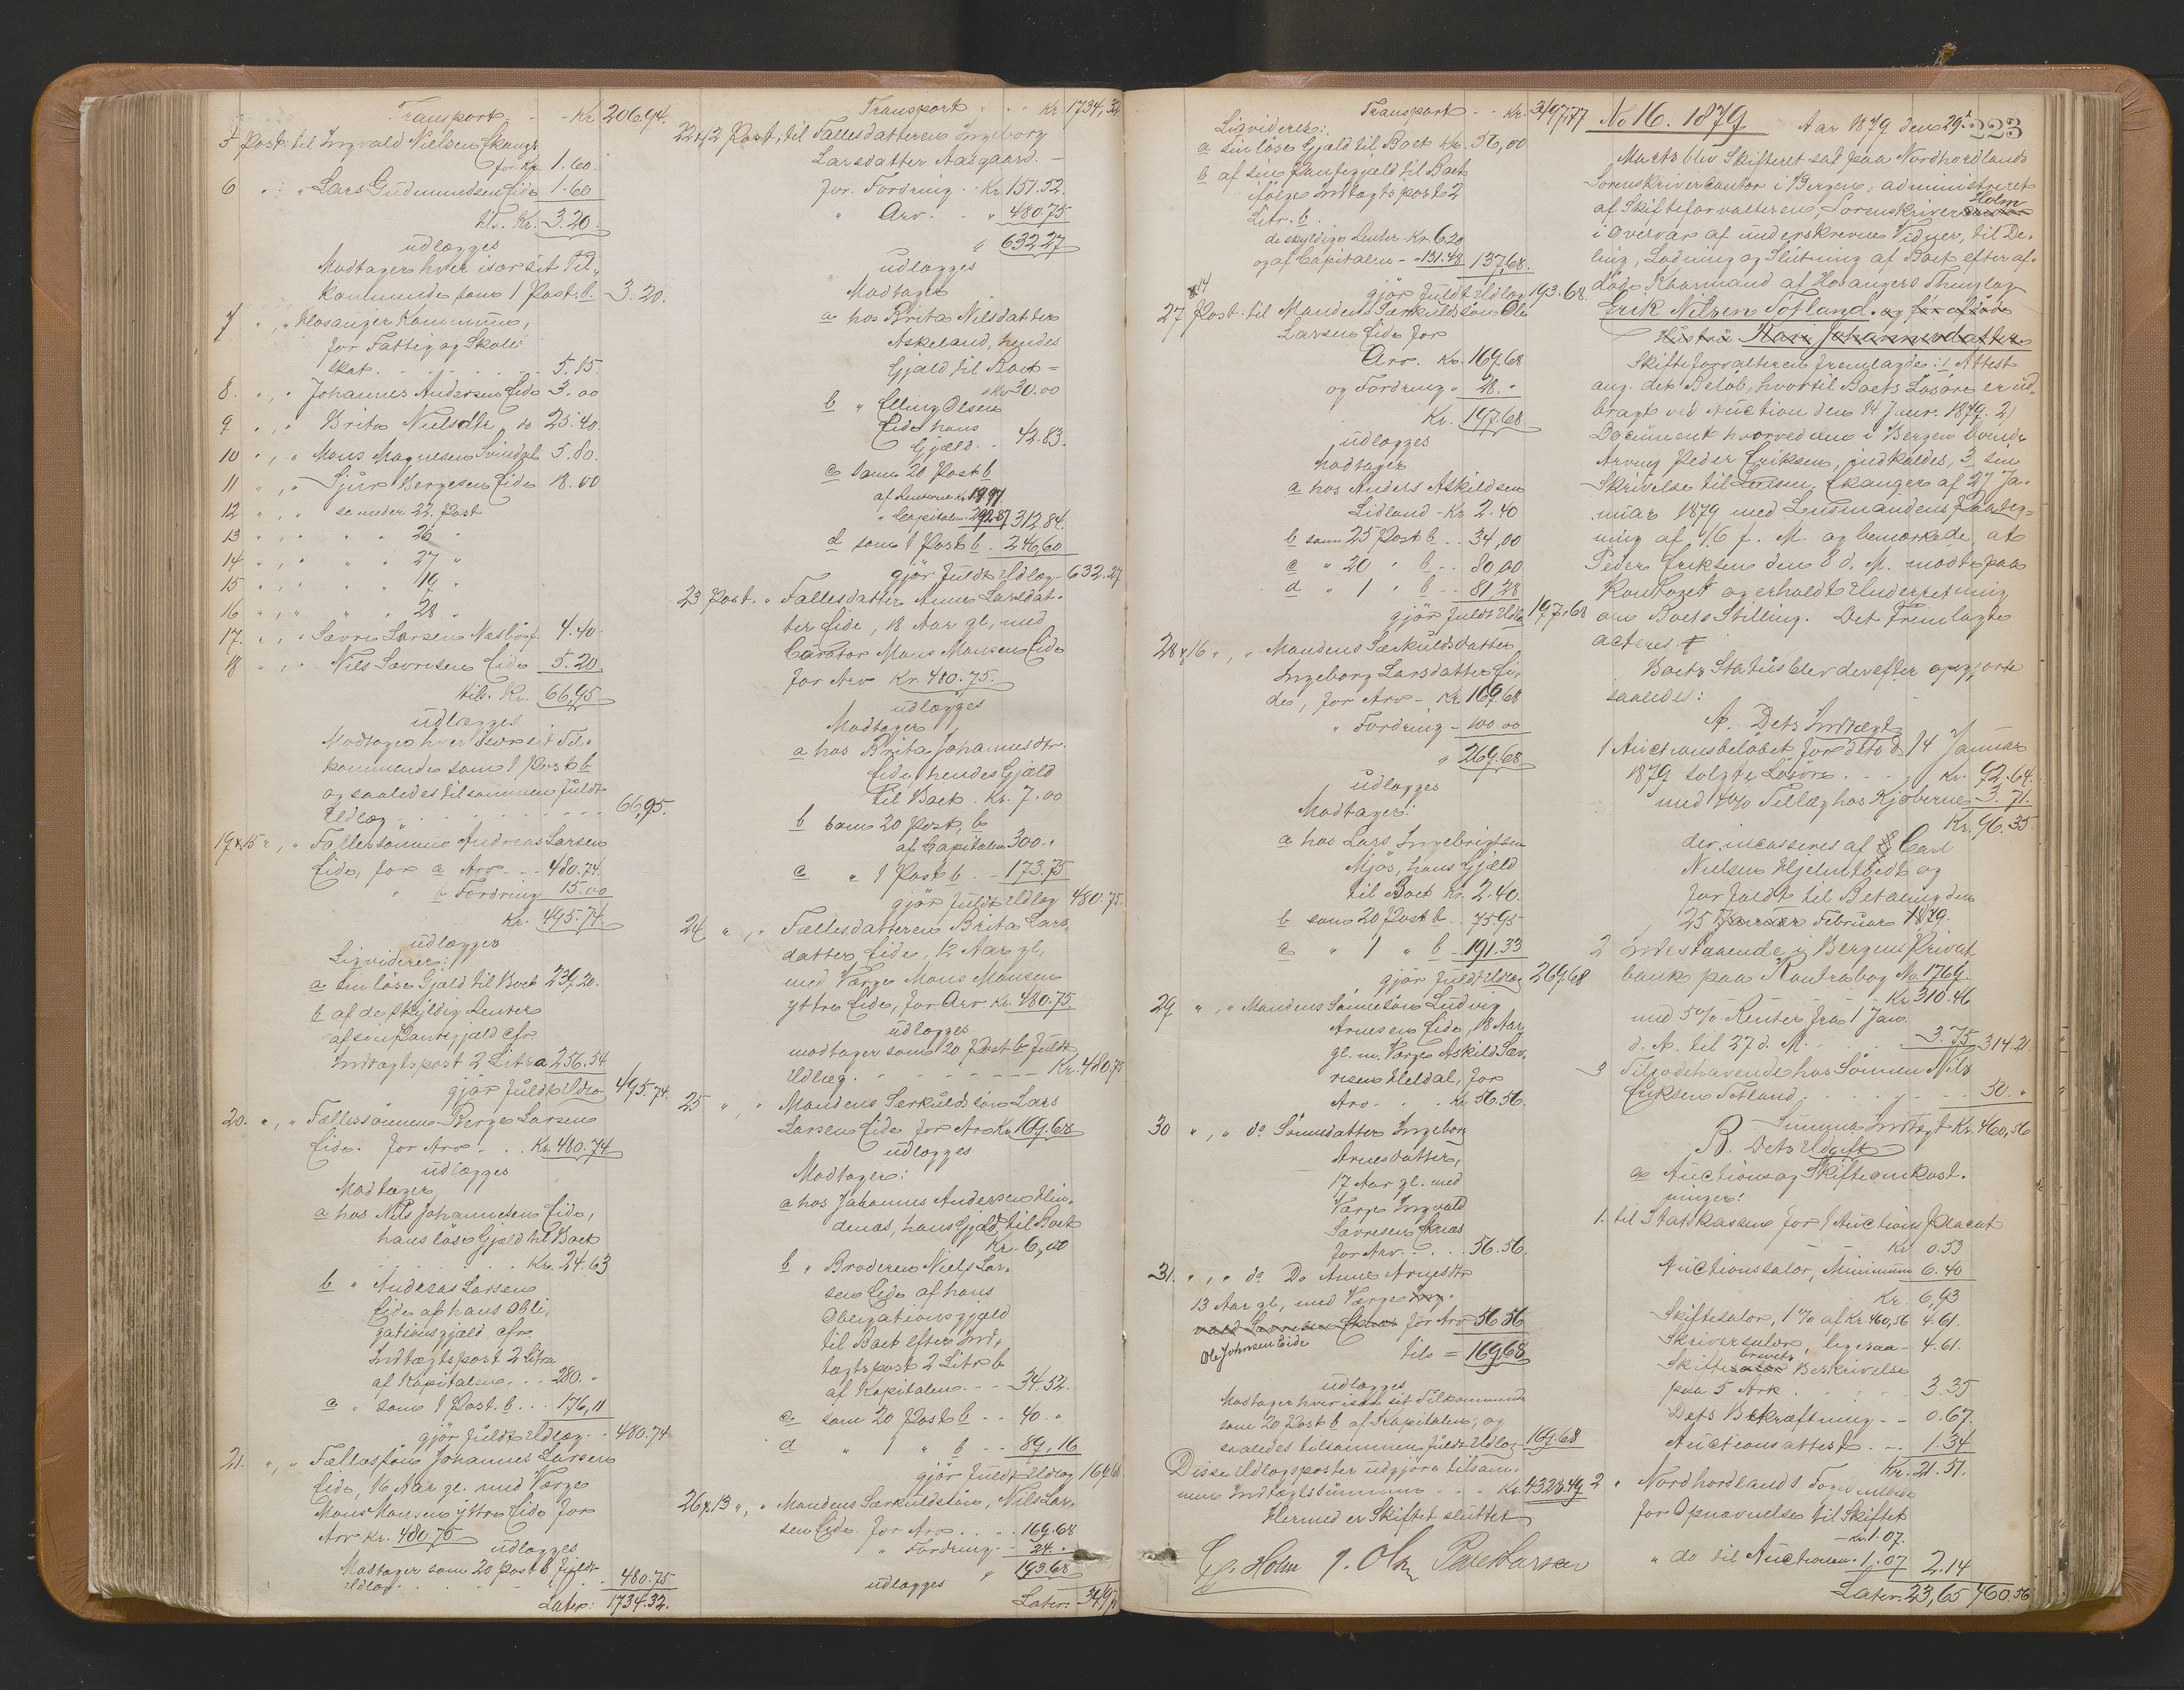 Transport - Kr. 206.94.
5 Post. til Ingvald Nielsen Ekanger
for Kr. 1.60.
6 " : " Lars Gudmundsen Eide 1.60
tils. Kr. 3.20.
udlægges
Modtager hver især sit Til-
kommende som 1 Post. b. - 3.20.
7 " , " Hosanger Kommune,
for Fattig og Skole
skat . . . . . . 5.15.
8. " , " Johannes Andersen Eide 3.00
9 " , " Brita Nielsdtr do 25.40.
10 " , " Mons Magnesen Svindal 5.80.
11 " , " Sjur Bergesen Eide 18.00
12 " , " se under 22. Post
13 " , " " " 26 "
14 " , " " " 27 "
15 " , " " " 19 "
16 " , " " " 28 "
17. " , " Sævre Larsen Næsbø 4.40.
18 " , " Nils Sævresen Eide 5.20.
tils. Kr. 66,95
udlægges
Modtager hver især sit Til-
kommende som 1 Post b
og saaledes tilsammen fuldt
Udlæg . . . . . . . . . 66,95.
19 & 15 " , " Fællessønnen Andreas Larsen
Eide, for a Arv - - - 480.74.
" b Fordring 15.00
Kr. 495.74.
udlægges
Liqviderer:
a sin løse Gjæld til Boet 239.20.
b af de skyldig Renter
af sin Pantegjæld cfr.
Indtægtspost 2 Litra a 256.54
gjør fuldt Udlæg 495.74.
20. " , " Fællessønnen Berge Larsen
Eide. for Arv . . . Kr. 480.74
udlægges
Modtager
a hos Nils Johannesen Eide,
hans løse Gjæld til Boet
. . . . . . . Kr. 24.63
b " Andreas Larsen
Eide af hans Obli-
gationsgjæld cfr.
Indtægtspost 2 Litra
af Kapitalen . . . 280. "
c " som 1 Post. b . . . 176,11
gjør fuldt Udlæg - - 480.74
21. " , " Fællessøn Johannes Larsen
Eide, 16 Aar gl. med Værge
Mons Monsen yttre Eide for
Arv Kr. 480.75
udlægges
Modtager som 20 Post b fuldt
Udlæg . . . . . . . - 480.75
Later: 1734.32.
Transport . . . Kr. 1734,32
22 & 12 Post. til Fællesdatteren Ingeborg
Larsdatter Aasgaard. -
for. Fordring . . Kr. 151.52.
" Arv. . . " 480.75
" 632.27
udlægges
Modtager
a hos Brita Nilsdatter
Askeland, hendes
Gjæld til Boet =
Kr. 30.00
b " Elling Olsen
Eide hans
Gjæld . . 42.83.
c som 20 Post b
af Renterne Kr. 19.97
" Capitalen 292.87 312.84.
d som 1 Post b . 246,60
gjør fuldt Udlæg - 632.27
23 Post. " Fællesdatter Anne Larsdat-
ter Eide, 18 Aar gl. med
Curator Mons Monsen Eide
for Arv Kr. 480.75.
udlægges
Modtager
a hos Brita Johannesdtr.
Eide, hendes Gjæld
til Boet . Kr. 7.00
b som 20 Post, b
af Capitalen 300. "
c " 1 Post b . - 173.75
gjør fuldt Udlæg 480.75.
24 " , " Fællesdatteren Brita Lars-
datter Eide, 12 Aar gl.
med Værge Mons Monsen
yttre Eide, for Arv Kr. 480.75
udlægges
modtager som 20 Post b fuldt
Udlæg. - - - - - - - - Kr. 480,75
25 " , " Mandens Særkuldssøn Lars
Larsen Eide for Arv Kr. 169.68
udlægges
Modtager:
a hos Johannes Andersen Hin-
denæs, hans Gjæld til Boet
Kr. 6,00
b " Broderen Niels Lar-
sen Eide af hans
Obligationsgjæld
til Boet efter Ind-
tægtspost 2 Litr b
af Kapitalen . - - 34.52.
c som 20 Post b . . 40. "
d " 1 " b . . 89,16
gjør fuldt Udlæg 169.68
26 & 13 " , " Mandens Særkuldssøn, Nils Lar-
sen Eide. for Arv . . . . 169.68
" Fordring . - 24. "
" 193.68
udlægges
Later. 3197.77
Transport - - Kr. 3197,77
Liqviderer:
a sin løse Gjæld til Boet Kr. 56,00
b af sin Pantegjæld til Boet
ifølge Indtægtspost 2
Litr. b.
de skyldige Renter Kr. 6.20
og af Capitalen - " 131.48 137,68.
gjør fuldt Udlæg 193.68.
27 & 14 Post. til Mandens Særkuldssøn Ole
Larsen Eide for
Arv. Kr. 169.68
og Fordring " 28. "
Kr. 197.68
udlægges
Modtager
a hos Anders Askildsen
Lidland - Kr. 2.40
b som 25 Post b . . 34,00
c " 20 " b . . 80,00
d " 1 " b . . 81.28
gjør fuldt Udlæg 197.68
28 & 16 " , " Mandens Særkuldsdatter
Ingeborg Larsdatter Ei-
de, for Arv - Kr. 169.68
" Fordring - 100.00
" 269.68
udlægges
Modtager:
a hos Lars Ingebrigtsen
Mjøs, hans Gjæld
til Boet Kr. 2.40.
b som 20 Post b . . 75.95
c " 1 " b - 191.33
gjør fuldt Udlæg 269.68
29 " , " Mandens Sønnesøn Ludvig
Arnesen Eide, 18 Aar
gl. m. Værge Askild Sæv-
resen Heldal, for
Arv - . . . Kr. 56.56.
30 " , " do Sønnedatter Ingeborg
Arnesdatter,
17 Aar gl. med
Værge Ingvald
Sævresen Eknæs
for Arv . . . . 56.56.
31. " , " do Do Anne Arnesdtr
13 Aar gl, med Værge Ing-
vald Sævresen Eknæs for Arv 56.56
Ole Johnsen Eide tils = 169.68
udlægges
Modtager hver især sit Tilkommende
som 20 Post b af Kapitalen, og
saaledes tilsammen fuldt Udlæg - 169.68
Disse Udlægsposter udgjøre tilsam-
men Indtægtssummen - - - Kr. 4328.49
Hermed er Skiftet sluttet
C. Holm J. Olsen Peder Larsen
No 16. 1879 Aar 1879 den 29de 223
Marts blev Skifteret sat paa Nordhordlands
Sorenskrivercontor i Bergen, administreret
af Skifteforvalteren, Sorenskriver Holm
i Overvær af underskrevne Vidner, til De-
ling, Lodning og Slutning af Boet efter af-
døde Kaarmand af Hosangers Thinglag
Erik Nilsen Totland. og før afdøde
Hustru Kari Johannesdatter
Skifteforvalteren fremlagde: 1 Attest
ang. det Beløb, hvortil Boets Løsøre er ud-
bragt ved Auction den 14 Januar 1879. 2)
Document hvorved den i Bergen boende
Arving Peder Eriksen, indkaldes, 3 sin
Skrivelse til Lensm. Ekanger af 27 Ja-
nuar 1879 med Lensmandens Paateg-
ning af 16 f. M. og bemærkede, at
Peder Eriksen den 8 d. M. mødte paa
Kontoret og erholdt Underretning
om Boets Stilling. Det Fremlagte
acteres.
Boets Status blev derefter opgjort
saaledes:
A. Dets Indtægt
1 Auctionsbeløbet for det d. 14 Januar
1879 solgte Løsøre . . - . Kr. 92.64.
med 4% Tillæg hos Kjøberne - 3.71.
Kr. 96.35
der incasseres af Carl
Nielsen Hjelmtvedt og
forfaldt til Betaling den
25 Januar Februar 1879.
2 Indestaaende i Bergens Privat-
bank paa Kontrabog No. 1769
- - Kr. 310.46
med 5% Renter fra 1 Jan.
d. A. til 27 d. M. . . - 3.75 314.21.
3 Tilgodehavende hos Sønnen Nils
Eriksen Totland . . . . - - 50. "
Summa Indtægt Kr. 460,56
B. Dets Udgift
a Auctions og Skifteomkost-
ninger:
1. til Statskassen for 1 Auctions Placat
Kr. 0.53
Auctionssalær, Minimum 6.40
Kr. 6,93
Skiftesalær, 1% af Kr. 460,56 4.61.
Skriversalær, ligesaa - 4.61.
Skiftebrevets Beskrivelse
paa 5 Ark . . . . 3.35
Dets Bekræftning - - 0.67.
Auctionsattest . . - 1.34
Kr. 21.51.
2 " Nordhordlands Foged
for Opnævnelse til Skiftet
- Kr. 1.07.
" do til Auctionen . 1.07 2.14
Later. 23,65 460.56